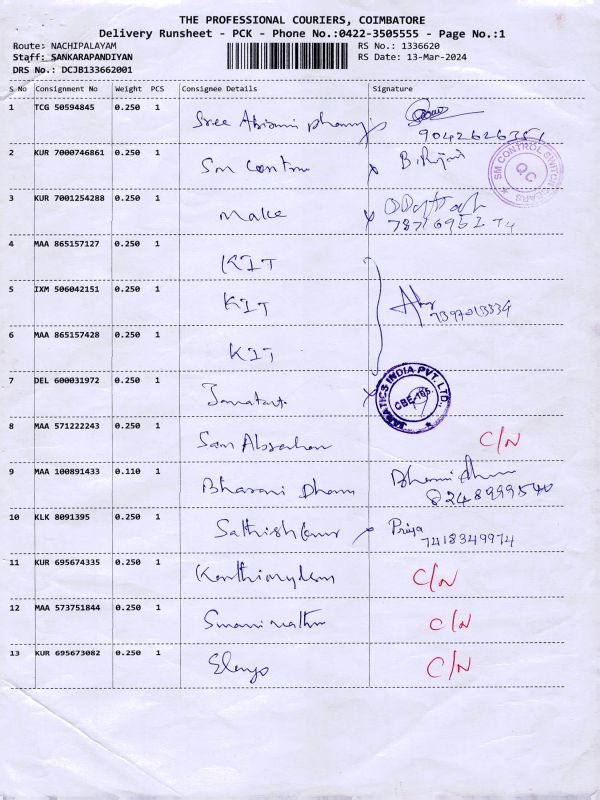 THE PROFESSIONAL COURIERS, COIMBATORE
Delivery Runsheet - PCK - Phone No.:0422-3505555 - Page No.:1
Route: NACHIPALAYAM RS No.: 1336620
Staff: SANKARAPANDIYAN RS Date: 13-Mar-2024
DRS No.: DCJB133662001
S No Consignment No Weight PCS Consignee Details Signature
1 TCG 50594845 0.250 1 Sree Abirami
2 KUR 7000746861 0.250 1 Sm control B.
SM CONTROL SWITCH GEARS QC
3 KUR 7001254288 0.250 1 make
4 MAA 865157127 0.250 1 KIT
5 IXM 506042151 0.250 1 KIT
6 MAA 865157428 0.250 1 KIT
7 DEL 600031972 0.250 1
JANATICS INDIA PVT. LTD., CBE-105
8 MAA 571222243 0.250 1 Sam C/N
9 MAA 100891433 0.110 1 Bharani Dharn
8248999540
10 KLK 8091395 0.250 1 Sathish Priya
7418349974
11 KUR 695674335 0.250 1 C/N
12 MAA 573751844 0.250 1 C/N
13 KUR 695673082 0.250 1 Elango C/N